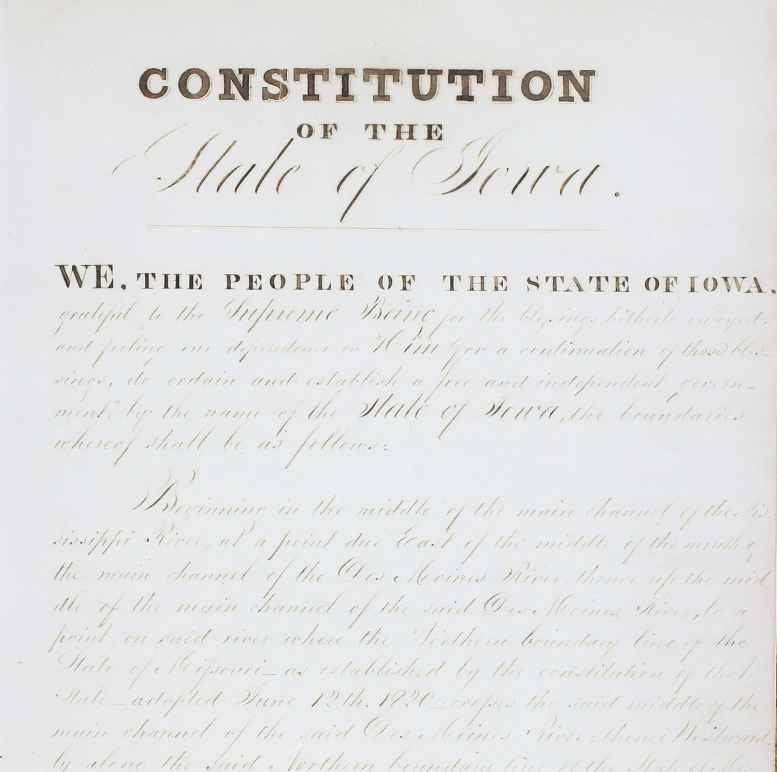 CONSTITUTION
OF THE
State of Iowa.
WE, THE PEOPLE OF THE STATE OF IOWA,
grateful to the Supreme Being for the blessings hitherto enjoyed,
and feeling our dependence on Him for a continuation of those bles-
sings, do ordain and establish a free and independent govern-
ment, by the name of the State of Iowa, the boundaries
whereof shall be as follows:
Beginning in the middle of the main channel of the Mis-
sissippi River, at a point due East of the middle of the mouth of
the main channel of the Des Moines River, thence up the mid-
dle of the main channel of the said Des Moines River, to a
point on said river where the Northern boundary line of the
State of Missouri—as established by the constitution of that
State—adopted June 12th, 1820—crosses the said middle of the
main channel of the said Des Moines River; thence Westward-
ly along the said Northern boundary line of the State of